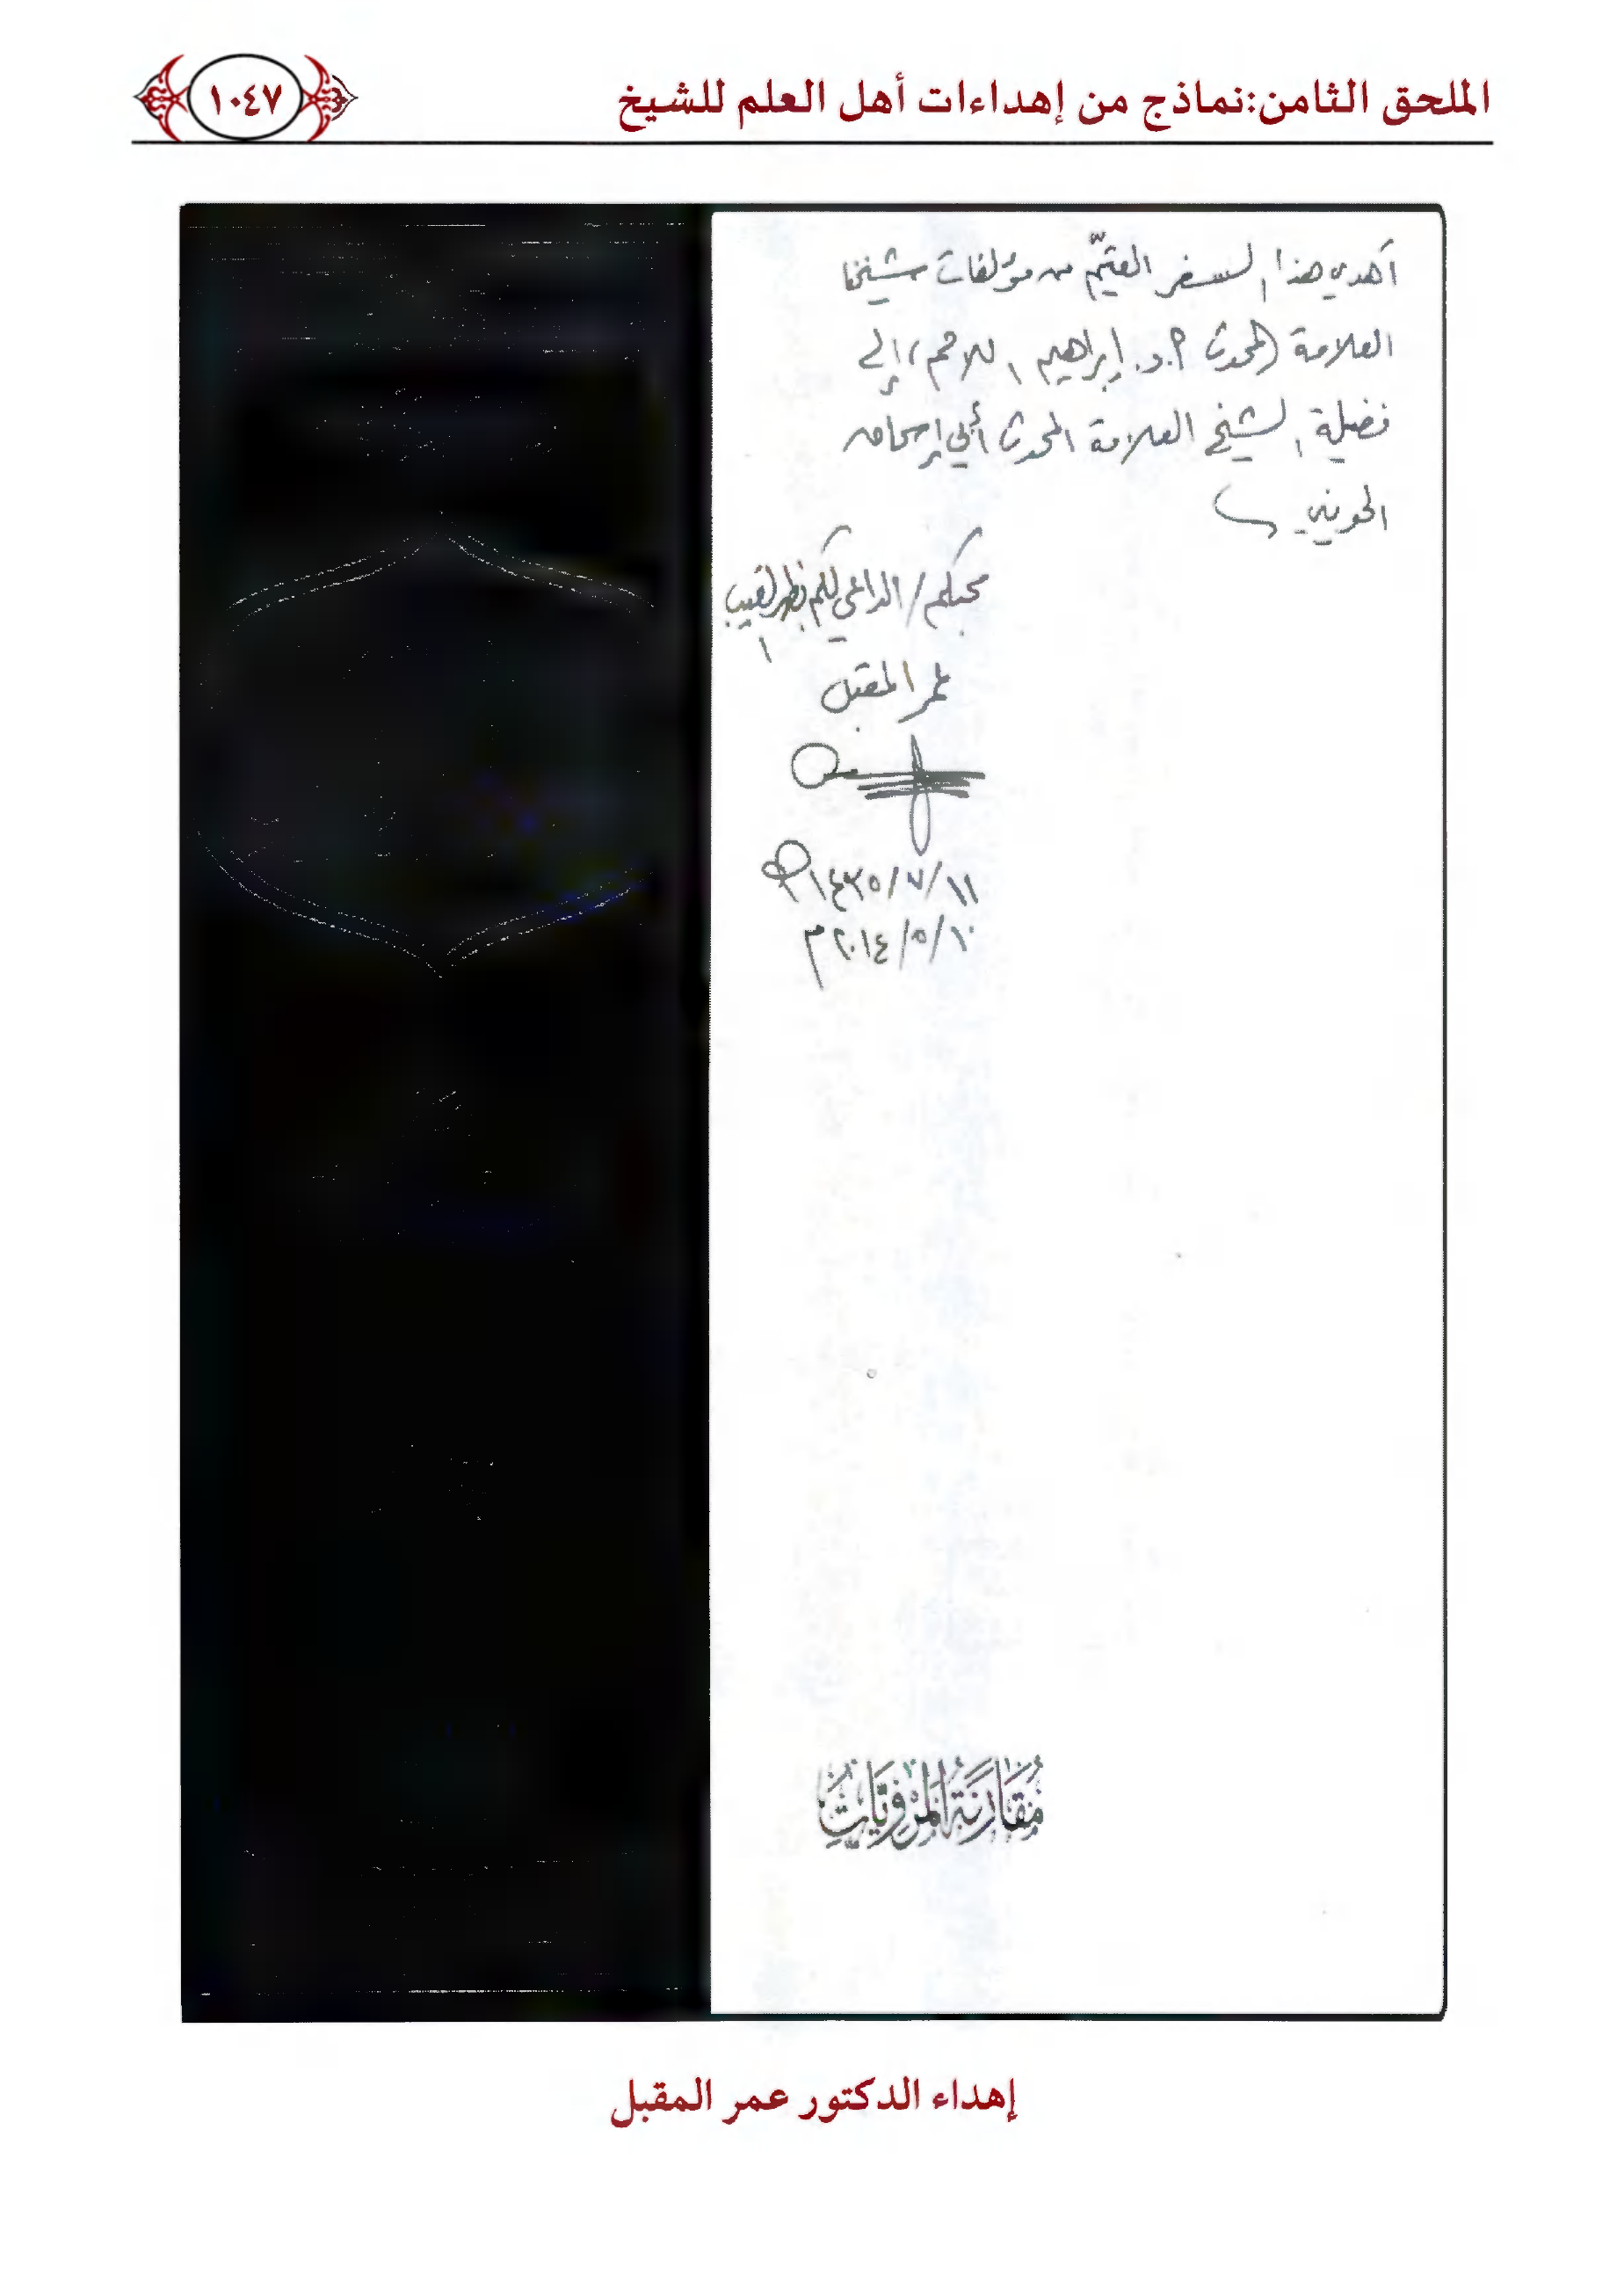 الملحق الثامن:نماذج من إهداءات أهل العلم للشيخ
١٠٤٧
أهدي هذا السفر القيّم من مؤلفات شيخنا
العلامة المحدث أ.د. إبراهيم اللاحم، إلى
فضيلة الشيخ العلامة المحدث أبي إسحاق
الحويني
محبكم / الداعي لكم بظهر الغيب
عمر المقبل
١١/٧/١٤٣٥هـ
١٠/٥/٢٠١٤م
مُقَارَنَةُ المَرْوِيَّاتِ
إهداء الدكتور عمر المقبل